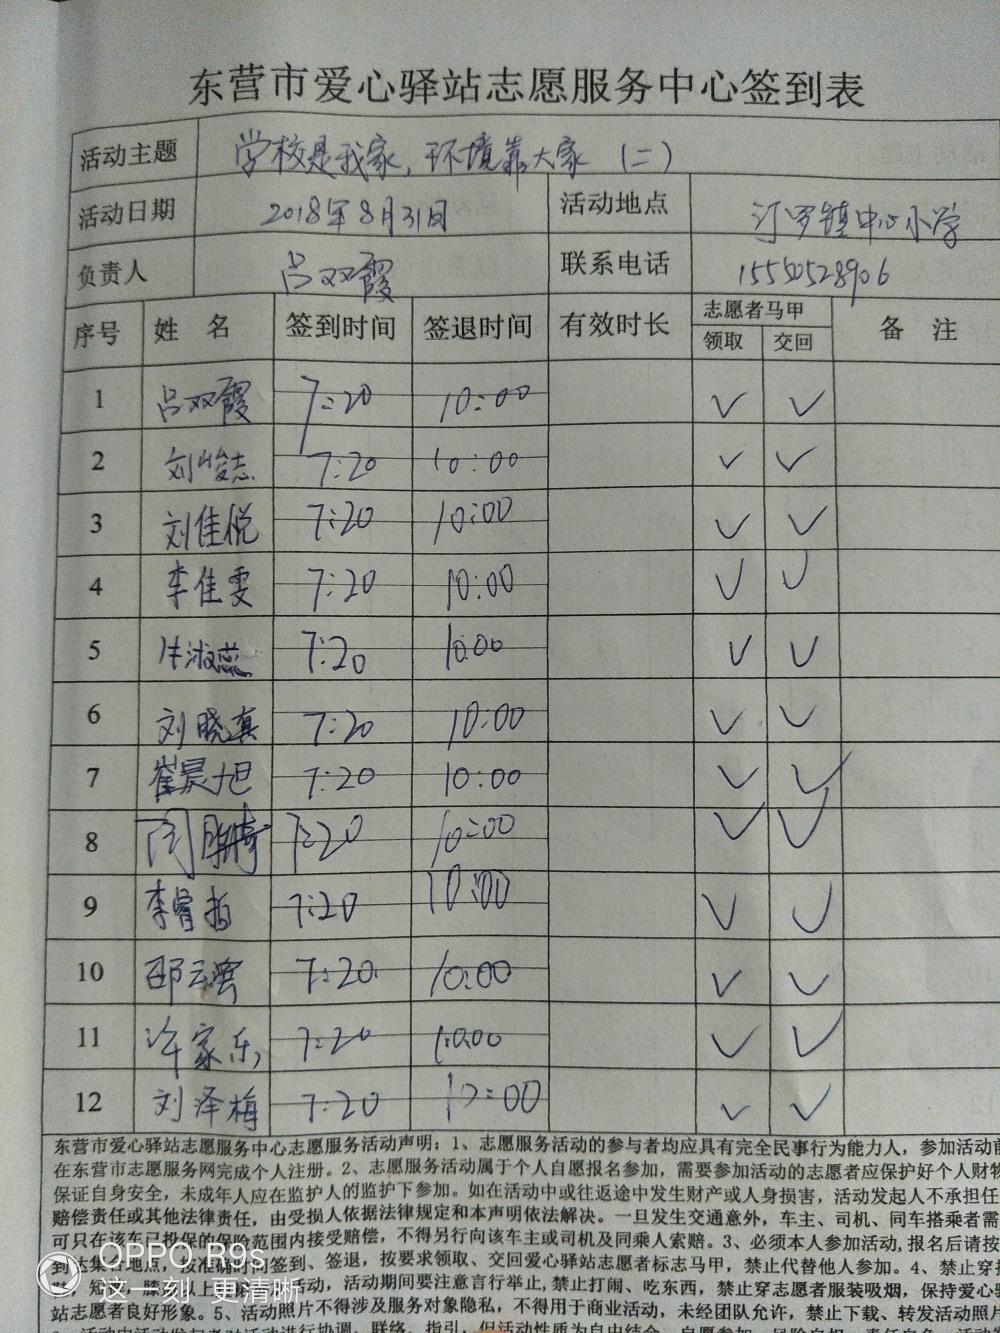 东营市爱心驿站志愿服务中心签到表
活动主题 学校是我家,环境靠大家(二)
活动日期 2018年8月31日 活动地点 汀罗镇中心小学
负责人 吕双霞 联系电话 15550528906
序号 姓名 签到时间 签退时间 有效时长 志愿者马甲 领取 交回 备注
1 吕双霞 7:20 10:00 ✓ ✓
2 刘峻志 7:20 10:00 ✓ ✓
3 刘佳悦 7:20 10:00 ✓ ✓
4 李佳雯 7:20 10:00 ✓ ✓
5 淑蕊 7:20 10:00 ✓ ✓
6 刘晓 7:20 10:00 ✓ ✓
7 崔晨旭 7:20 10:00 ✓ ✓
8 周 7:20 10:00 ✓ ✓
9 李睿哲 7:20 10:00 ✓ ✓
10 邵云 7:20 10:00 ✓ ✓
11 许家乐 7:20 10:00 ✓ ✓
12 刘泽梅 7:20 10:00 ✓ ✓
东营市爱心驿站志愿服务中心志愿服务活动声明:1、志愿服务活动的参与者均应具有完全民事行为能力人,参加活动前
在东营市志愿服务网完成个人注册。2、志愿服务活动属于个人自愿报名参加,需要参加活动的志愿者应保护好个人财物
保证自身安全,未成年人应在监护人的监护下参加。如在活动中或往返途中发生财产或人身损害,活动发起人不承担任
赔偿责任或其他法律责任,由受损人依据法律规定和本声明依法解决。一旦发生交通意外,车主、司机、同车搭乘者需
可只在该车已投保的保险范围内接受赔偿,不得另行向该车主或司机及同乘人索赔。3、必须本人参加活动,报名后请按
到达集合地点,按准时间签到、签退,按要求领取、交回爱心驿站志愿者标志马甲,禁止代替他人参加。4、禁止穿拖
鞋,短 膝 以上 活动,活动期间要注意言行举止,禁止打闹、吃东西,禁止穿志愿者服装吸烟,保持爱心驿
站志愿者良好形象。5、活动照片不得涉及服务对象隐私,不得用于商业活动,未经团队允许,禁止下载、转发活动照片
OPPO R9s
这一刻 更清晰